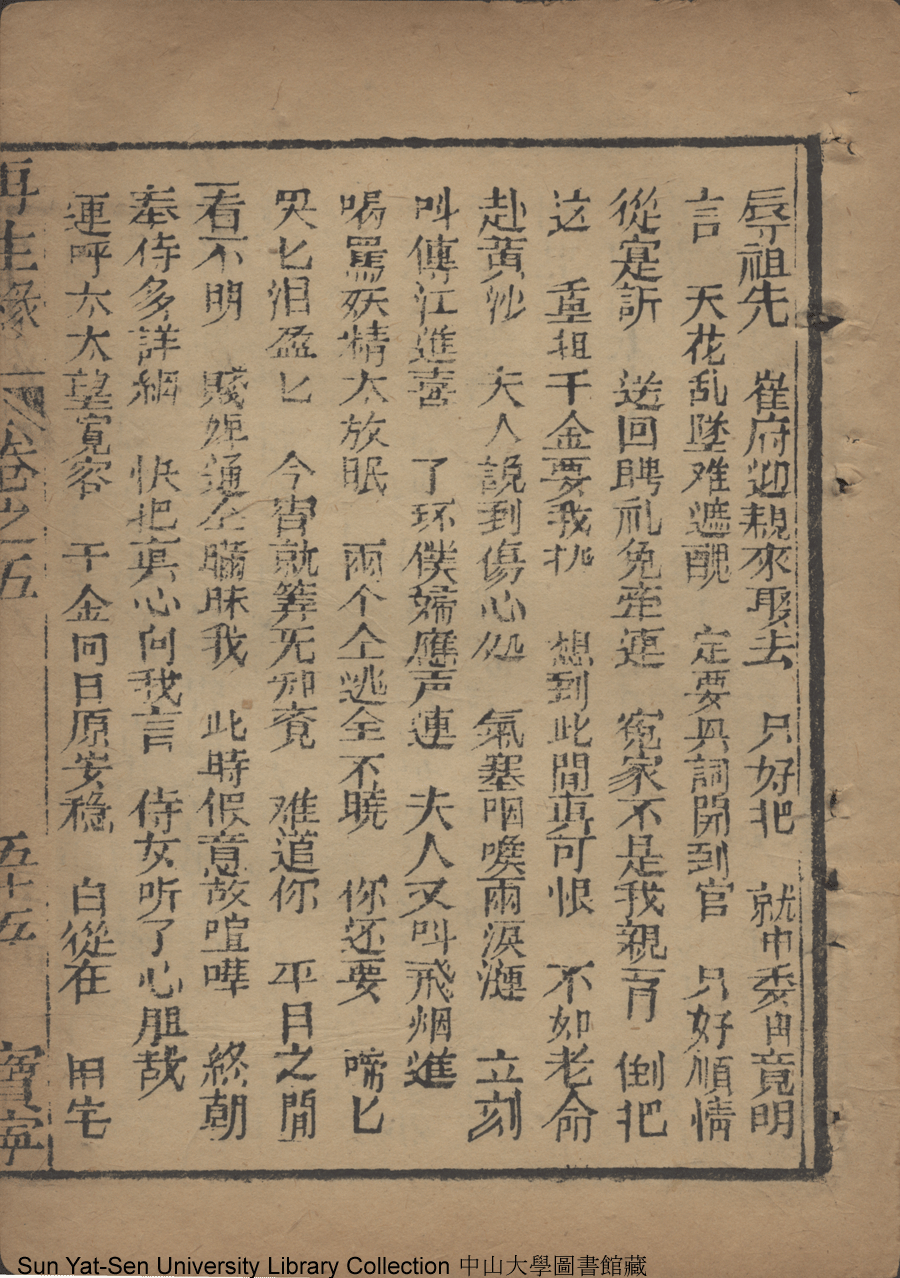 辱祖先 崔府迎親來娶去 只好把 就中委曲竟明
言 天花乱墜难遮醜 定要興詞開到官 只好順情
從寔訴 送回聘礼免牽連 寃家不是我親育 倒把
这 重担千金要我挑 想到此間真可恨 不如老命
赴黄沙 夫人說到傷心処 氣塞咽喉兩淚漣 立刻
叫傳江進喜 了环僕婦應声連 夫人又叫飛烟進
喝罵妖精太放眠 兩个仝逃全不曉 你还要 啼匕
哭匕泪盈匕 今宵就筭无 难道你 平日之間
看不明 賤婢通仝瞞昧我 此時假意故喧嘩 終朝
奉侍多詳細 快把真心向我言 侍女听了心胆
連呼太太望寬容 千金向日原安穩 自從在 田宅
再生緣 卷之五 五十五 寶寧
Sun Yat-Sen University Library Collection 中山大學圖書館藏